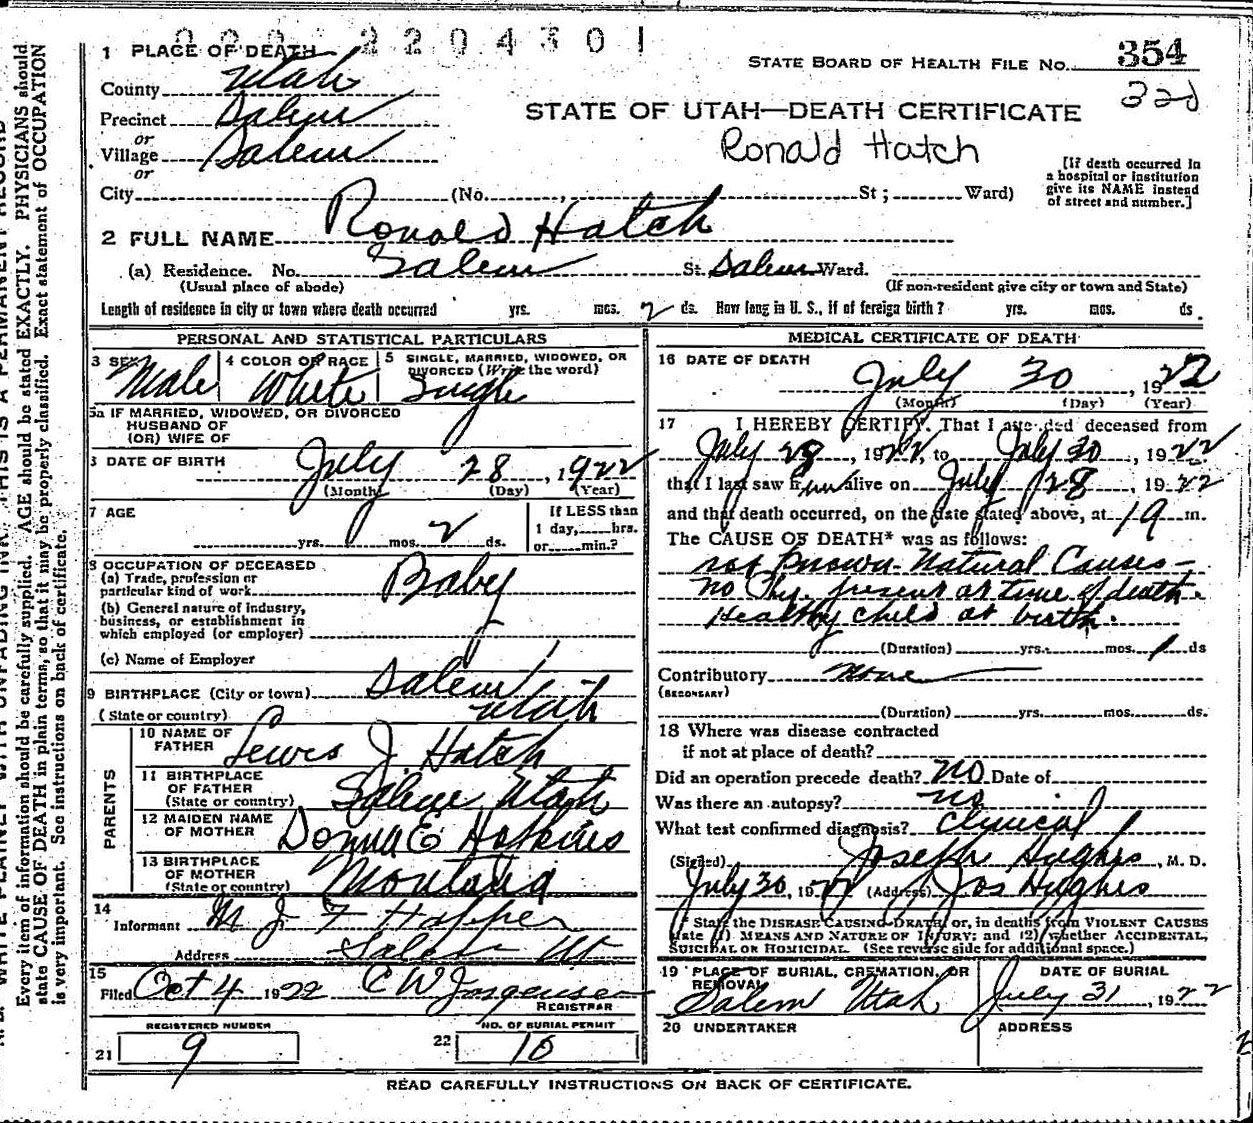 009 2204301
1 PLACE OF DEATH
STATE BOARD OF HEALTH FILE NO. 354
County Utah
Precinct Salem
or
Village Salem
or
STATE OF UTAH—DEATH CERTIFICATE
Ronald Hatch
City (No. , St ; Ward)
[If death occurred in a hospital or institution give its NAME instead of street and number.]
2 FULL NAME Ronald Hatch
(a) Residence. No. Salem St. Salem Ward.
(Usual place of abode)
(If non-resident give city or town and State)
Length of residence in city or town where death occurred yrs. mos. 2 ds. How long in U. S., if of foreign birth? yrs. mos. ds.
PERSONAL AND STATISTICAL PARTICULARS
3 SEX Male
4 COLOR OR RACE White
5 SINGLE, MARRIED, WIDOWED, OR DIVORCED (Write the word) Single
5a IF MARRIED, WIDOWED, OR DIVORCED
HUSBAND OF
(OR) WIFE OF
DATE OF BIRTH July 28, 1922
(Month) (Day) (Year)
7 AGE
yrs. mos. 2 ds.
If LESS than
1 day, hrs.
or min.?
8 OCCUPATION OF DECEASED
(a) Trade, profession or particular kind of work Baby
(b) General nature of industry, business, or establishment in which employed (or employer)
(c) Name of Employer
9 BIRTHPLACE (City or town) Salem
(State or country) Utah
PARENTS
10 NAME OF FATHER Lewis J. Hatch
11 BIRTHPLACE OF FATHER (State or country) Salem Utah
12 MAIDEN NAME OF MOTHER Donna E Hopkins
13 BIRTHPLACE OF MOTHER (State or country) Montana
14
Informant M J F Hopper
Address Salem Ut
15
Filed Oct 4 1922 C W Jorgensen
REGISTRAR
REGISTERED NUMBER
21 9
NO. OF BURIAL PERMIT
22 10
MEDICAL CERTIFICATE OF DEATH
16 DATE OF DEATH
July 30, 1922
(Month) (Day) (Year)
17 I HEREBY CERTIFY. That I attended deceased from
July 28, 1922, to July 30, 1922
that I last saw him alive on July 28, 1922
and that death occurred, on the date stated above, at 19 m.
The CAUSE OF DEATH* was as follows:
not known Natural Causes -
no Phy. present at time of death.
Healthy child at birth.
(Duration) yrs. mos. 1 ds
Contributory none
(SECONDARY)
(Duration) yrs. mos. ds.
18 Where was disease contracted
if not at place of death?
Did an operation precede death? no Date of
Was there an autopsy? no
What test confirmed diagnosis? Clinical
(Signed) Joseph Hughes, M. D.
July 30, 1922 (Address) Jos Hughes
* State the DISEASE CAUSING DEATH, or, in deaths from VIOLENT CAUSES
state (1) MEANS AND NATURE OF INJURY; and (2) whether ACCIDENTAL,
SUICIDAL OR HOMICIDAL. (See reverse side for additional space.)
19 PLACE OF BURIAL, CREMATION, OR REMOVAL
Salem Utah
DATE OF BURIAL
July 31, 1922
20 UNDERTAKER
ADDRESS
READ CAREFULLY INSTRUCTIONS ON BACK OF CERTIFICATE.
Every item of information should be carefully supplied. AGE should be stated EXACTLY. PHYSICIANS should
state CAUSE OF DEATH in plain terms, so that it may be properly classified. Exact statement of OCCUPATION
is very important. See instructions on back of certificate.